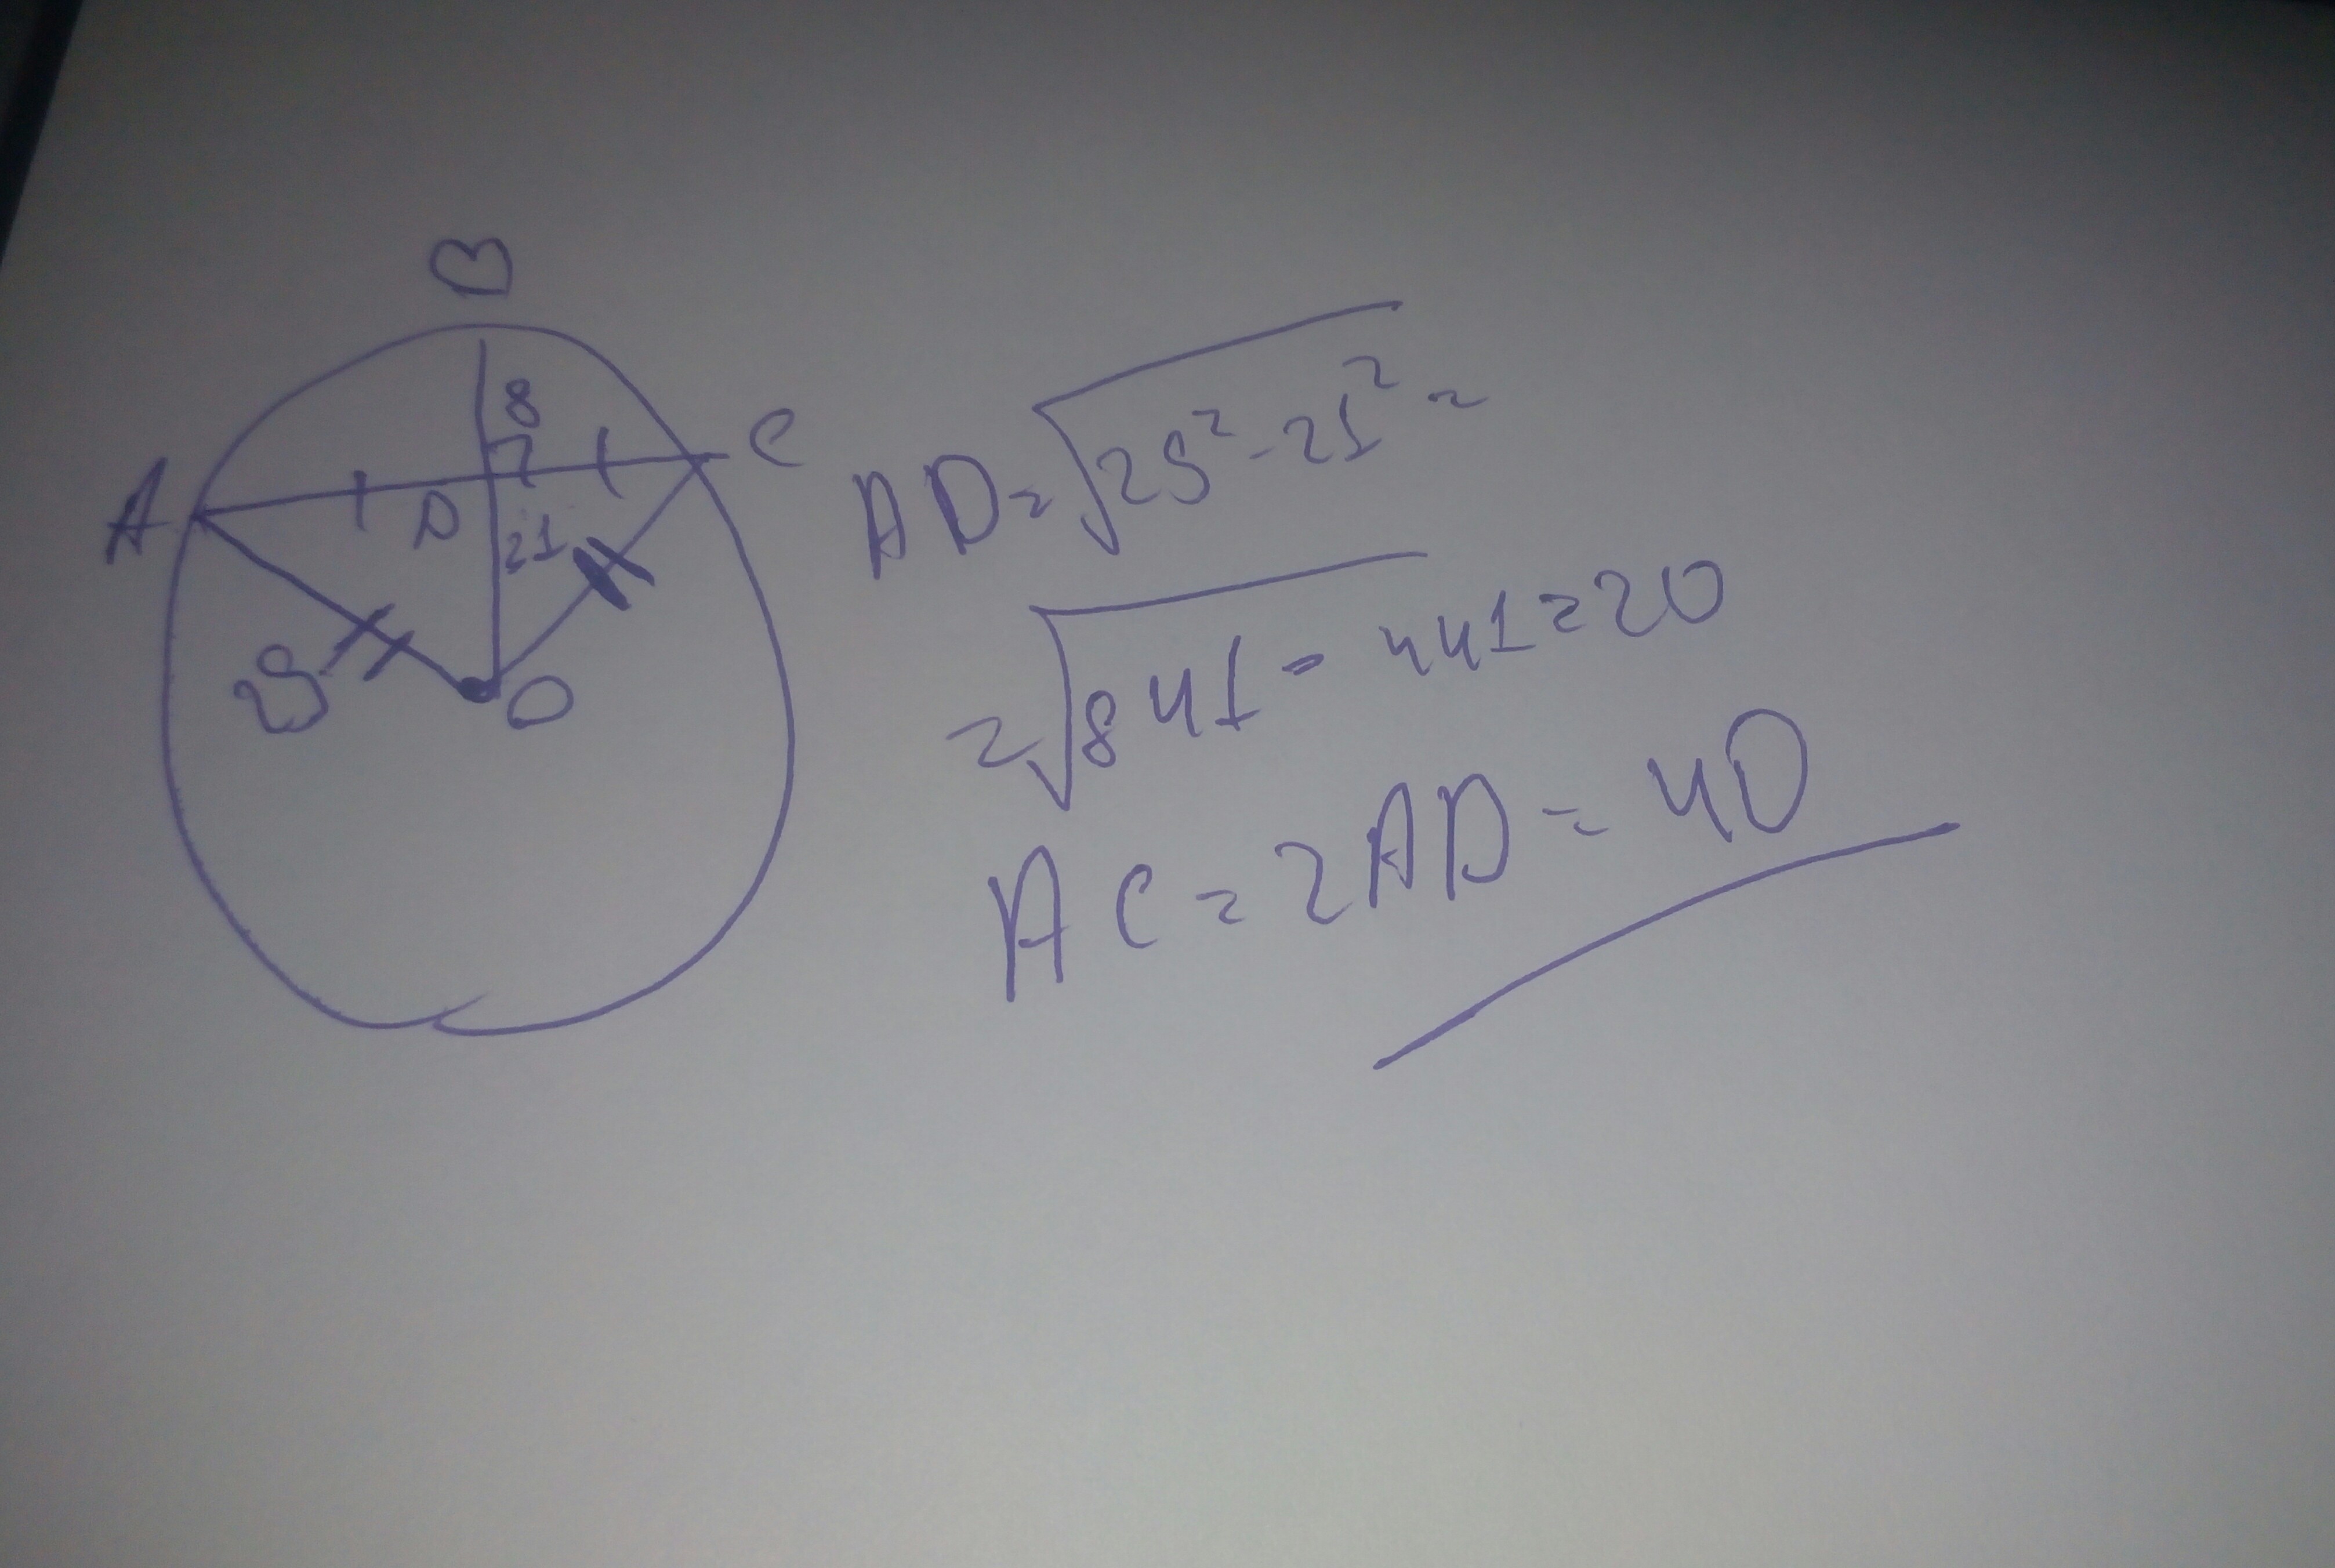 B
8
C
A
D
21
29
O
AD=√29²-21²=
=√841-441=20
AC=2AD=40